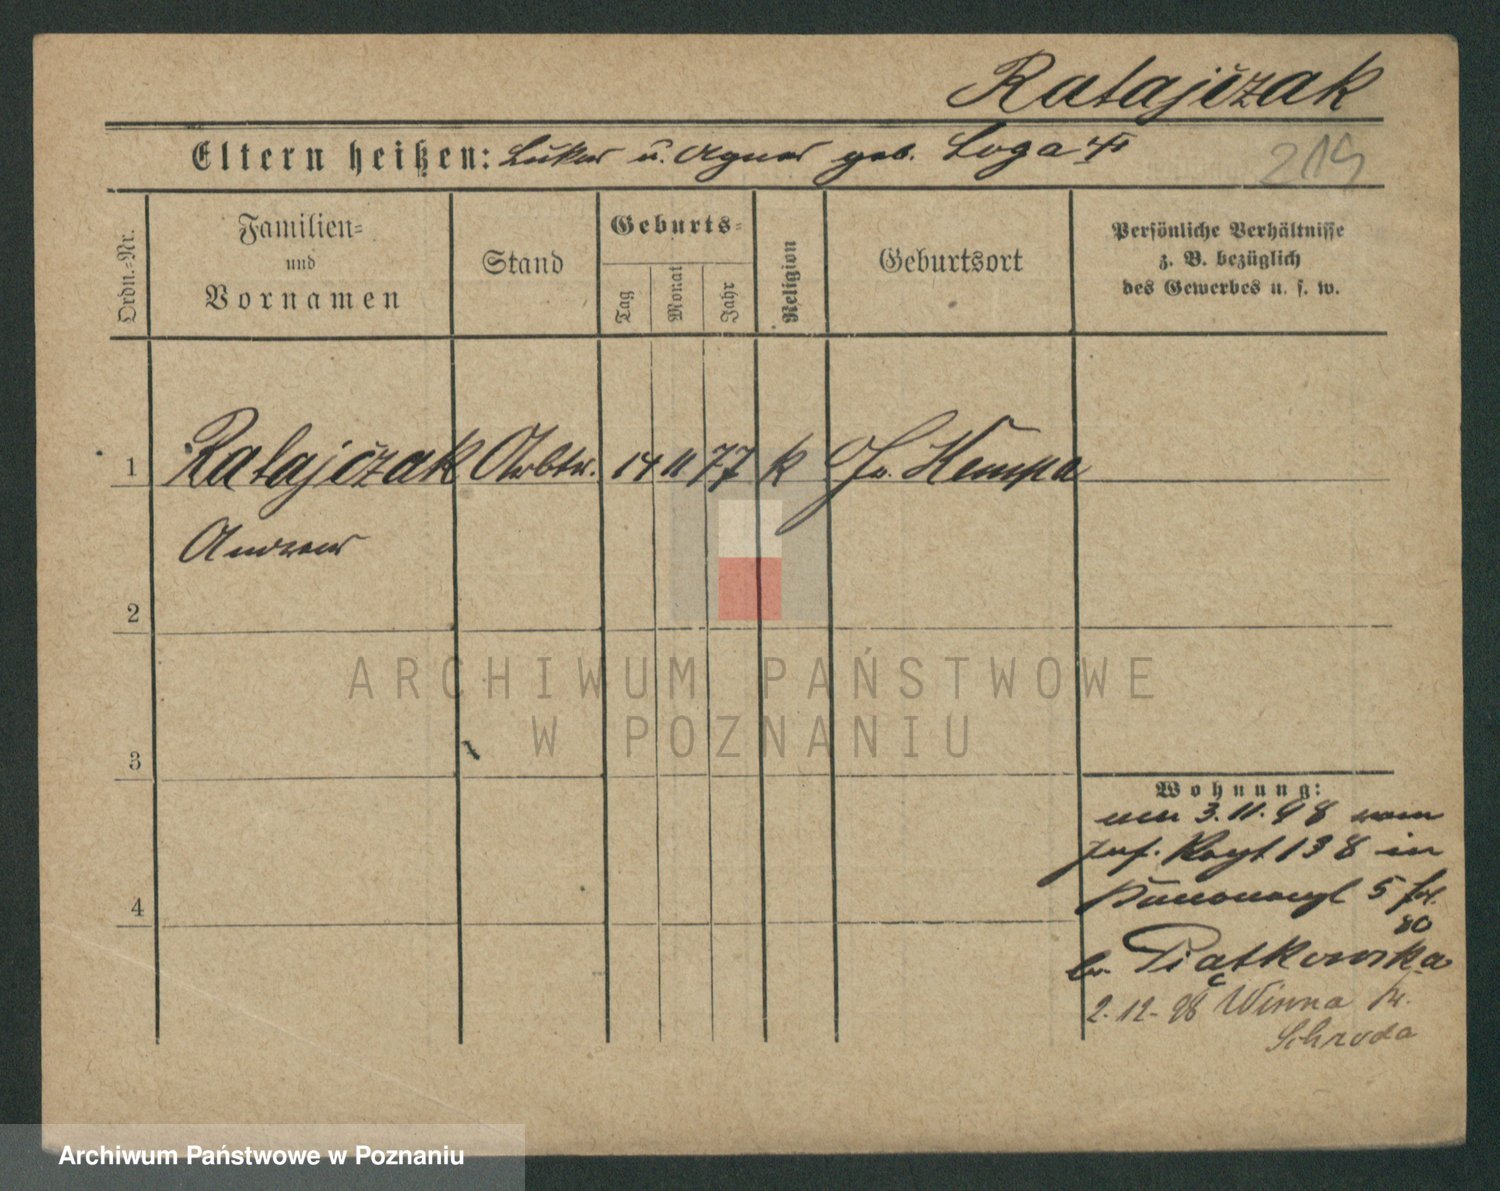 Ratajczak
Eltern heißen: Lukas u. Agnes geb. Loga
219
Ordn.-Nr.
Familien-
und
Vornamen
Stand
Geburts-
Tag
Monat
Jahr
Religion
Geburtsort
Persönliche Verhältnisse
z. B. bezüglich
des Gewerbes u. s. w.
1 Ratajczak Arbtr. 14 11 77 k Gr. Kempa
Andreas
2
ARCHIWUM PAŃSTWOWE
W POZNANIU
3
Wohnung:
3.11.98 vom
138 in
5
80
b. Piatkowska
2.12.98 Winna Kr.
Schroda
4
Archiwum Państwowe w Poznaniu